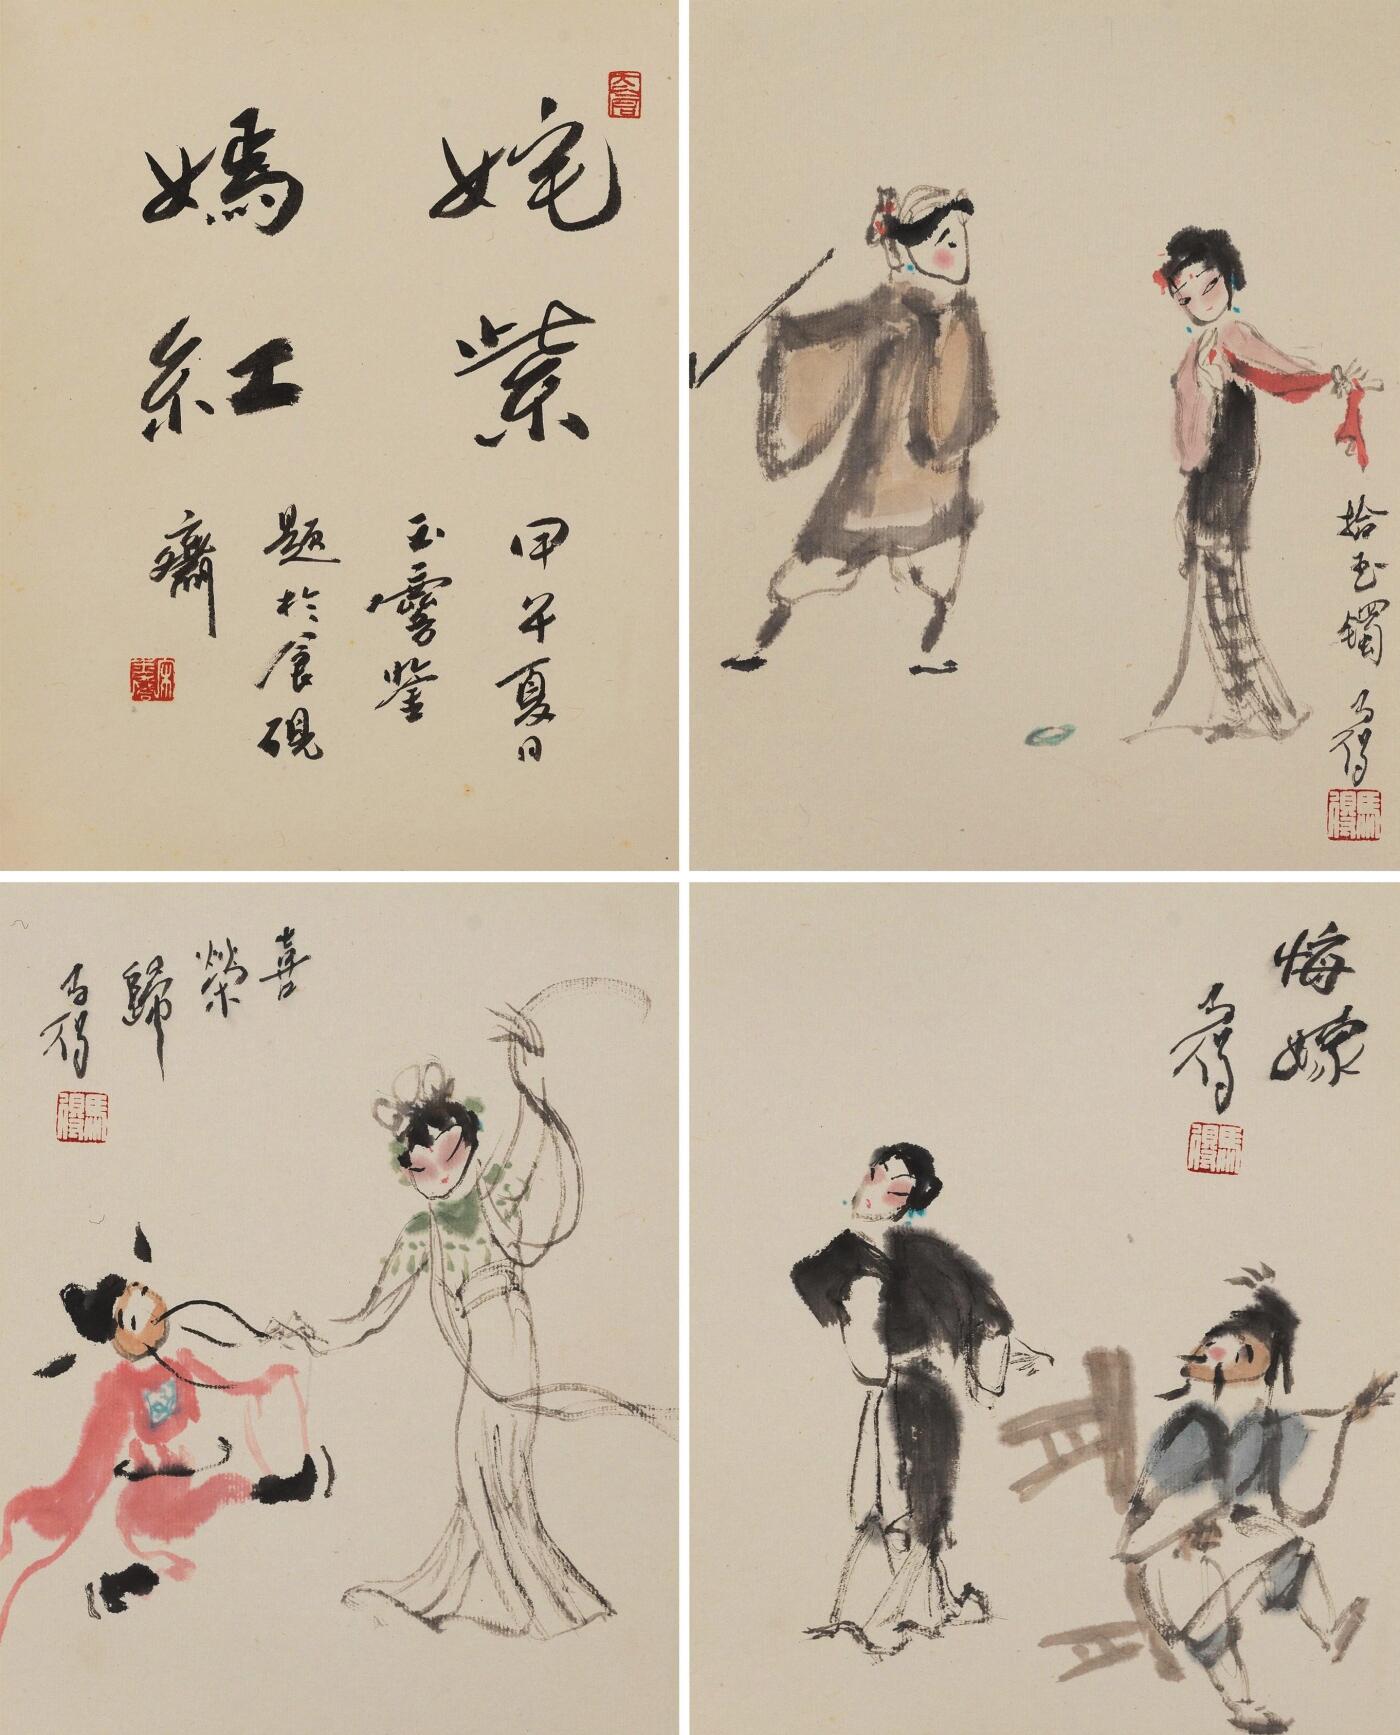 姹紫
嫣紅
甲午夏日
玉霽鑒
題於食硯
齋
拾玉鐲
马得
馬得
喜
榮
歸
马得
馬得
悔嫁
马得
馬得